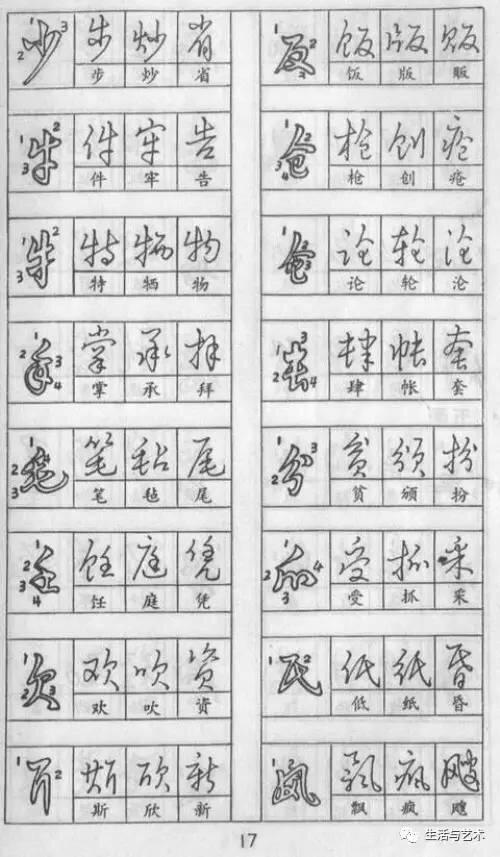 少 步 炒 省
步 炒 省
牛 件 牢 告
件 牢 告
牜 特 牺 物
特 牺 物
手 掌 承 拜
掌 承 拜
毛 笔 毡 尾
笔 毡 尾
壬 饪 庭 凭
饪 庭 凭
欠 欢 吹 资
欢 吹 资
斤 斯 欣 新
斯 欣 新
反 饭 版 贩
饭 版 贩
仓 枪 创 疮
枪 创 疮
仑 论 轮 沦
论 轮 沦
肆 帐 套
肆 帐 套
分 贫 颁 扮
贫 颁 扮
爫 受 抓 采
受 抓 采
氏 低 纸 昏
低 纸 昏
风 飘 疯 飕
飘 疯 飕
17
生活与艺术